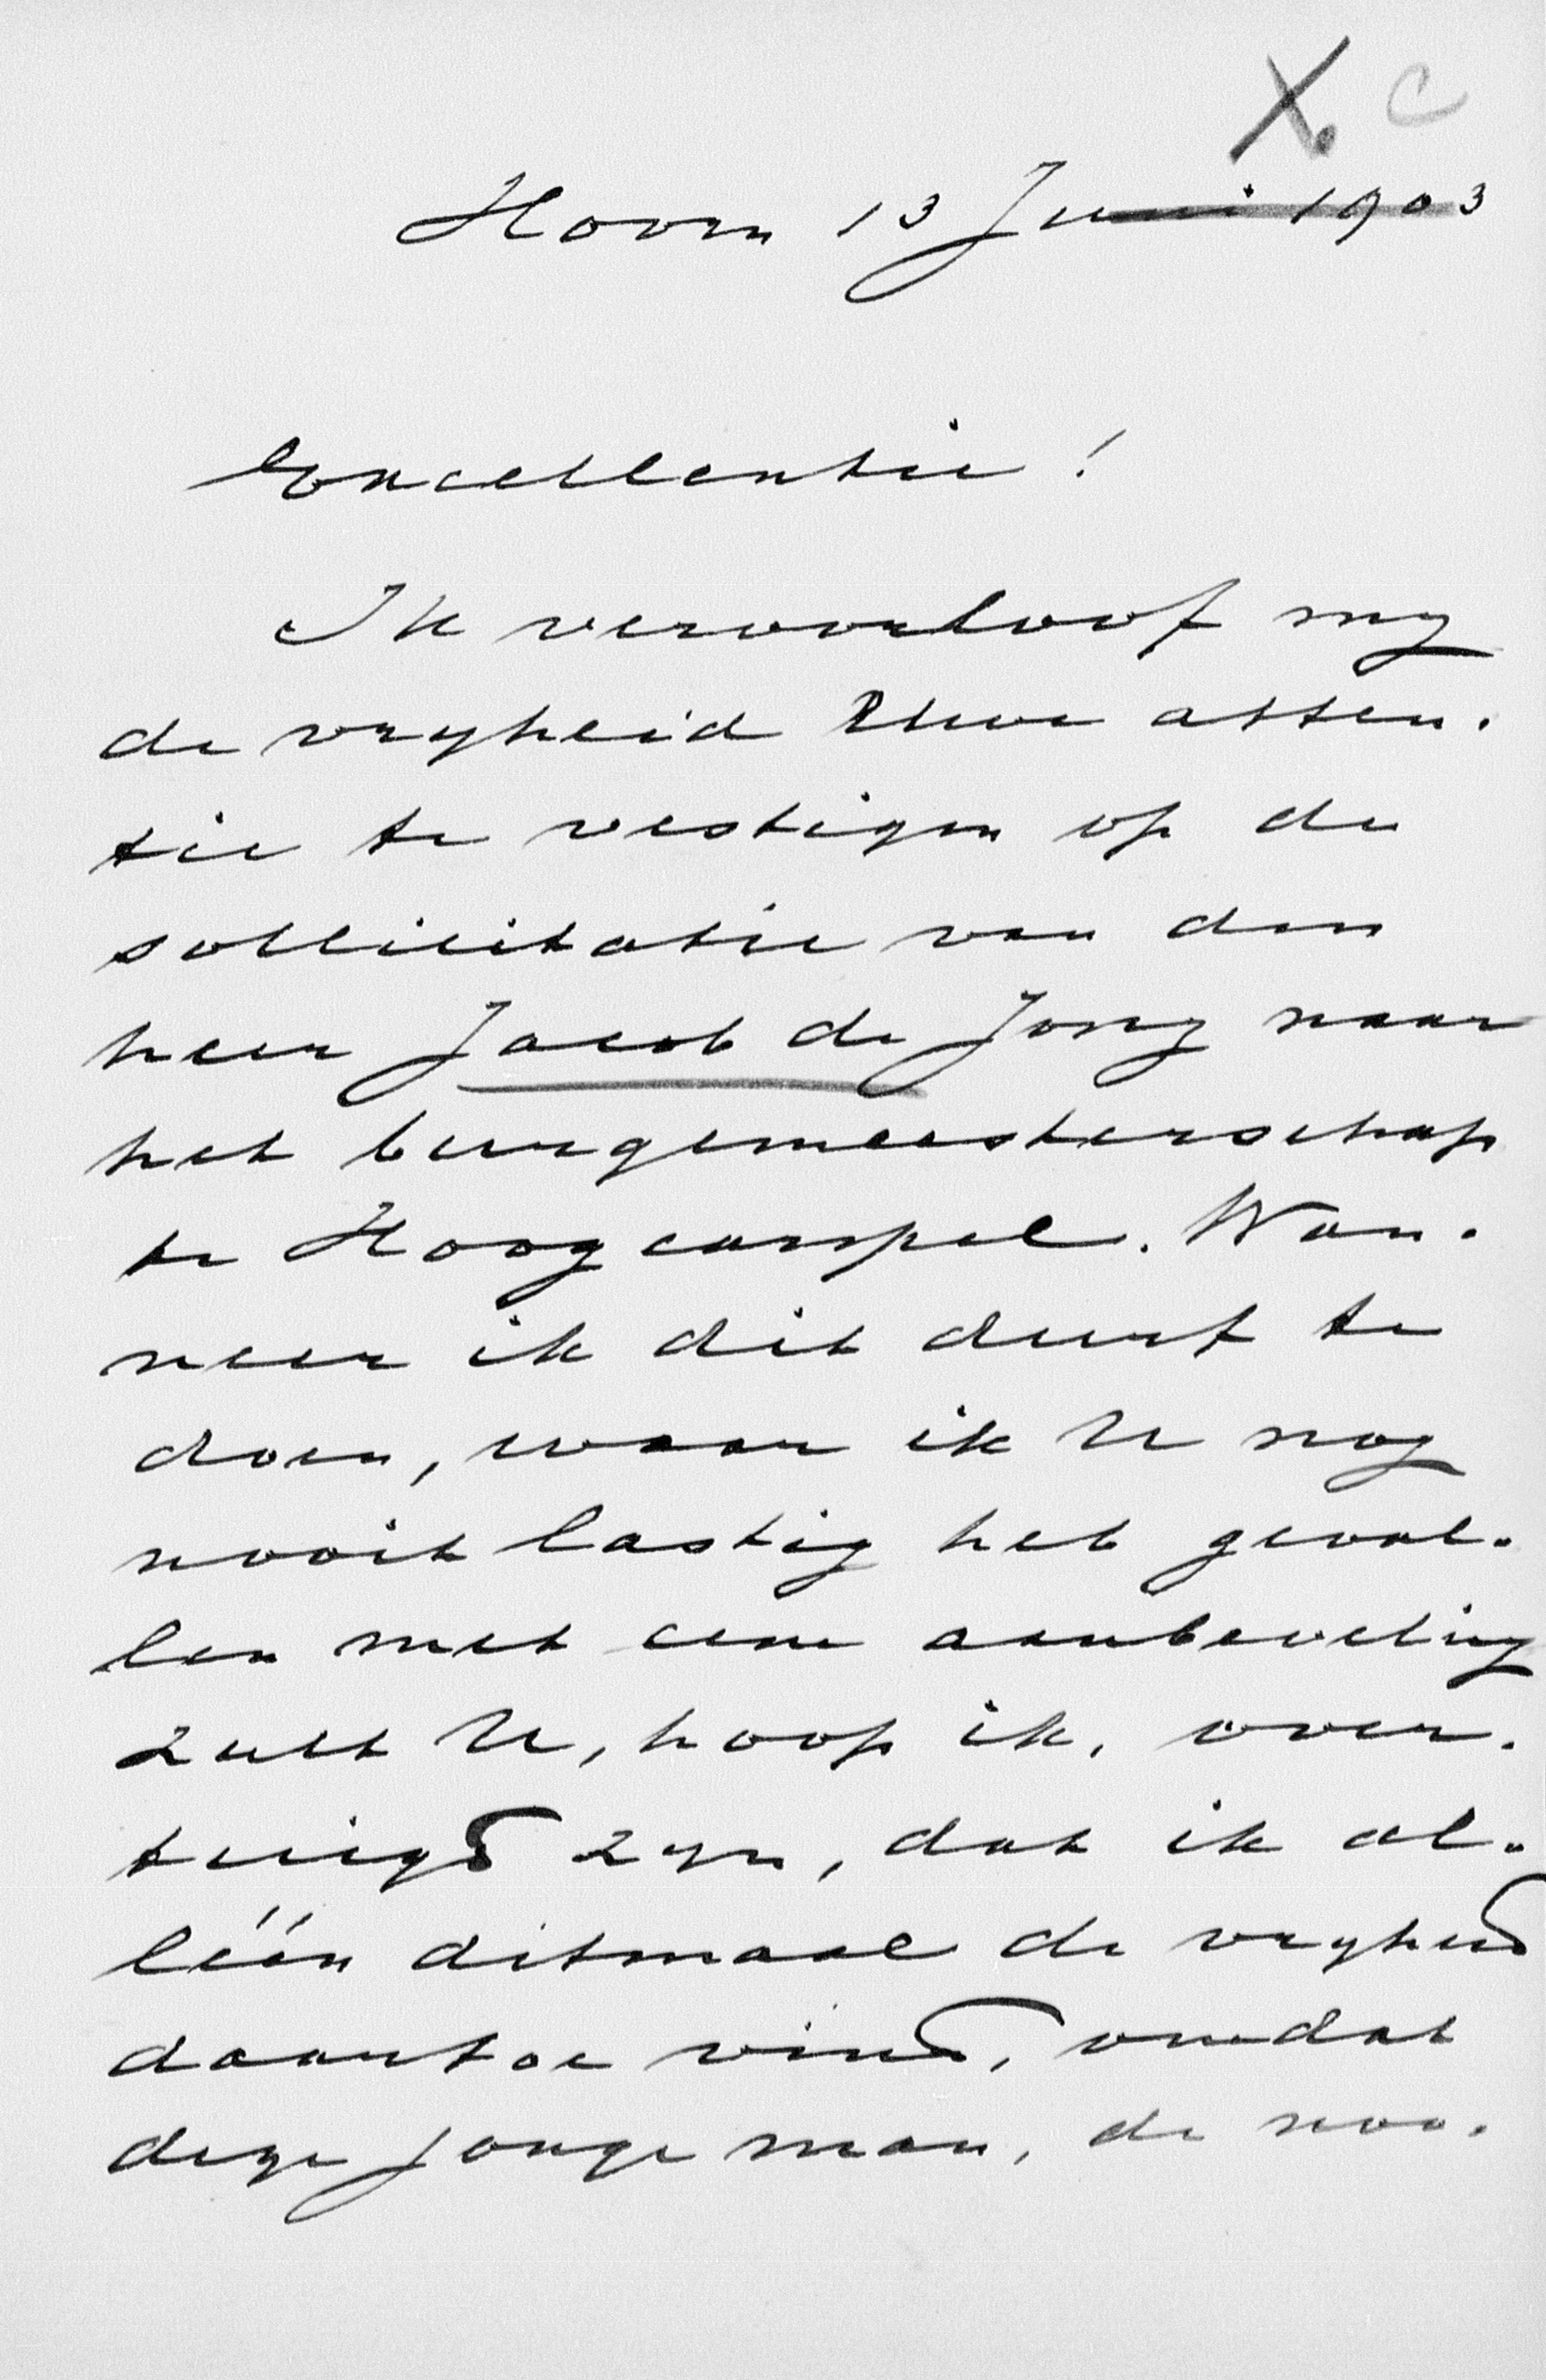 X. C
Hoorn 13 Juni 1903
Excellentie!
Ik veroorloof my
de vryheid Uwe atten-
tie te vestigen op de
sollicitatie van den
heer Jacob de Jong naar
het burgemeesterschap
te Hoogcarspel. Wan-
neer ik dit durf te
doen, waar ik U nog
nooit lastig heb geval-
len met eene aanbeveling
zult U, hoop ik, over-
tuigd zyn, dat ik al-
léén ditmaal de vryheid
daartoe vind, omdat
deze jonge man, de